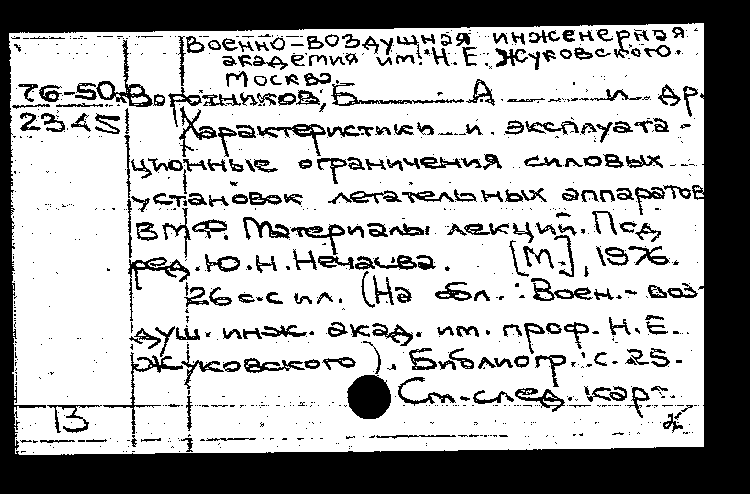 Военно-воздушная инженерная
академия им. Н.Е. Жуковского.
Москва.
76-50
Воротников, Б А и др.
2345
Характеристики и эксплуата-
ционные ограничения силовых
установок летательных аппаратов
ВМФ. Материалы лекций. Под
ред. Ю.Н. Нечаева. [М.], 1976.
26 с. с ил. (На обл.: Воен.-воз-
душ. инж. акад. им. проф. Н.Е.
Жуковского). Библиогр.: с. 25.
См. след. карт.
13